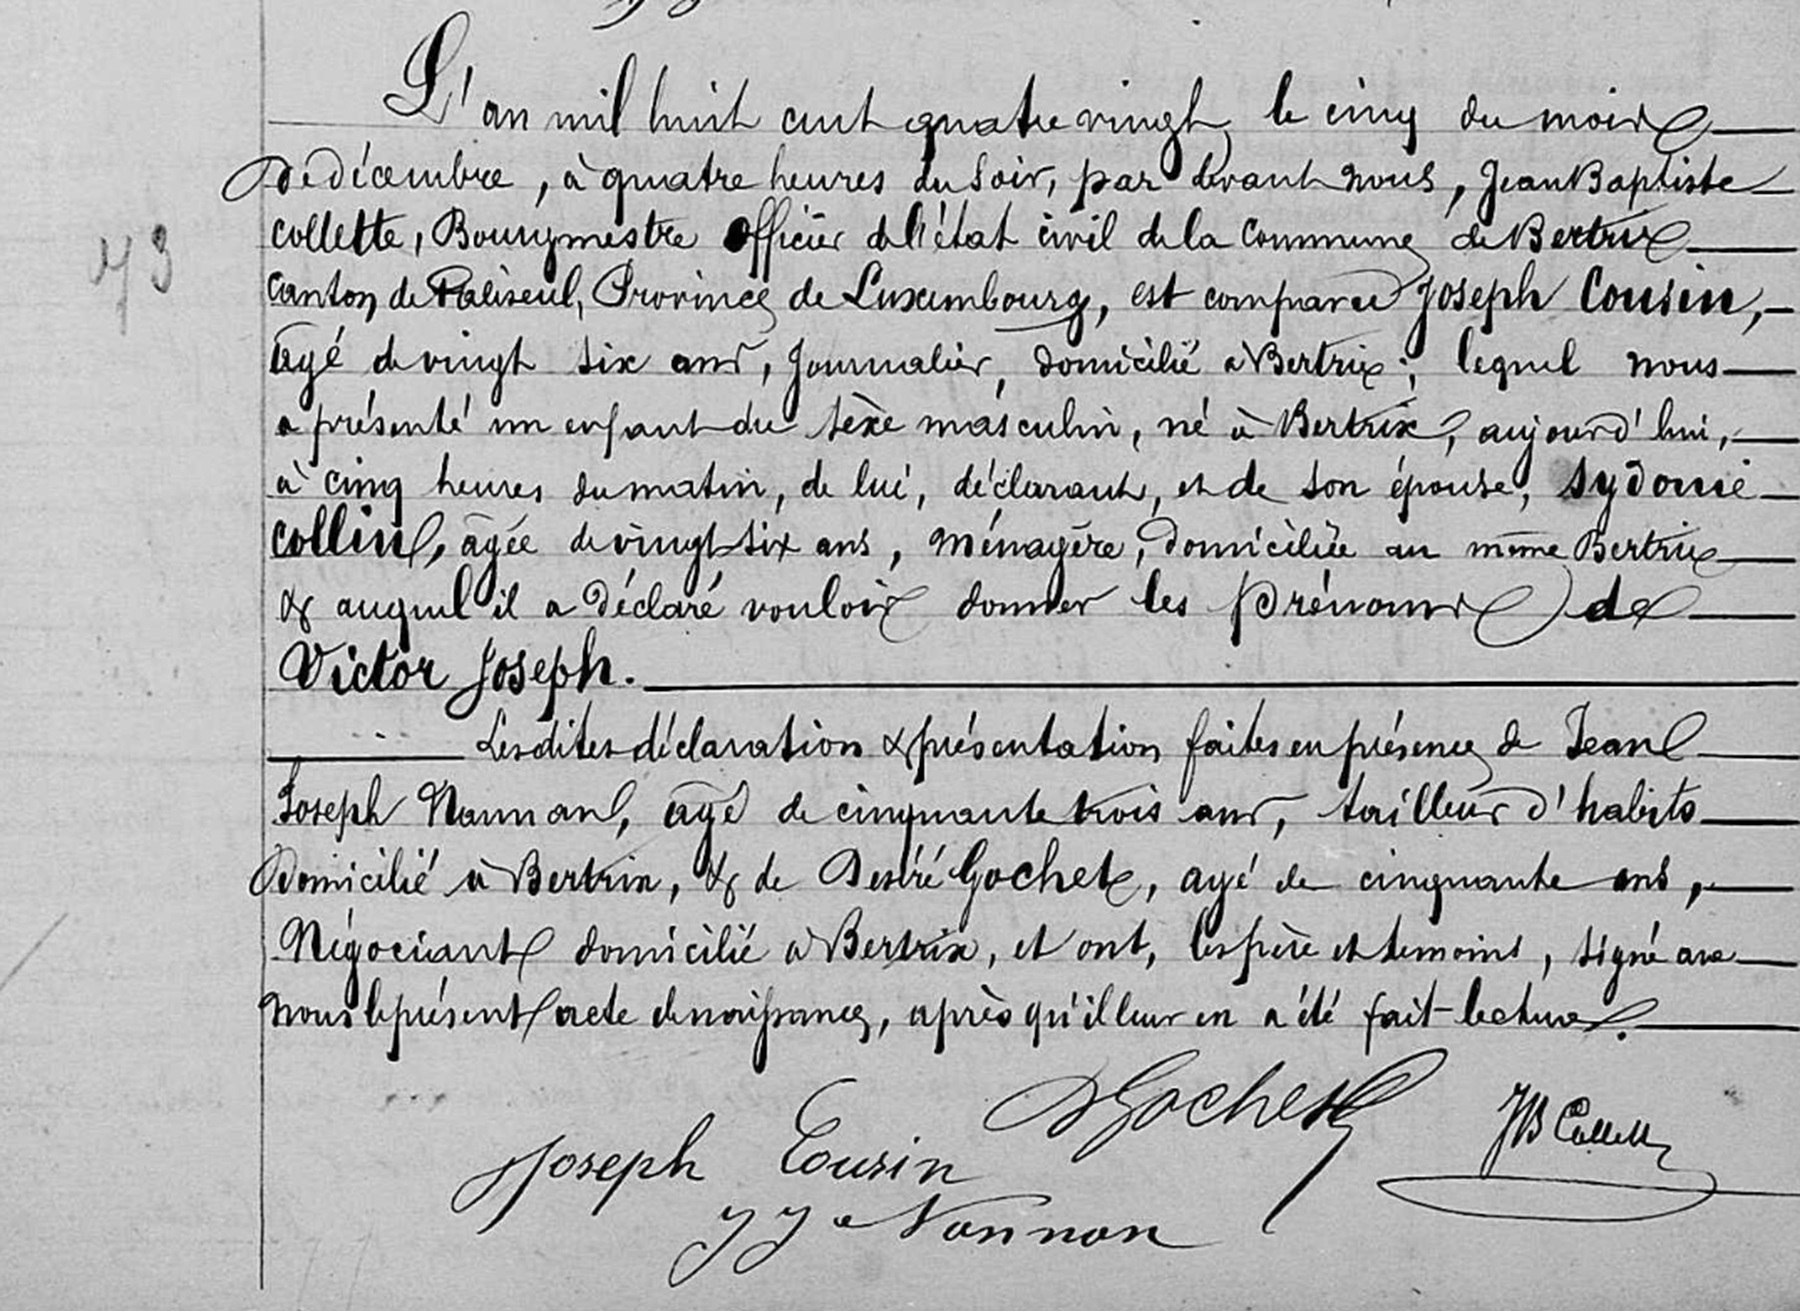 L'an mil huit cent quatre vingt, le cinq du mois
de décembre, à quatre heures du soir, par devant nous, Jean Baptiste
Collette, Bourgmestre officier de l'état civil de la Commune de Bertrix
Canton de Paliseul, Province de Luxembourg, est comparu Joseph Cousin,
agé de vingt six ans, journalier, domicilié à Bertrix; lequel nous
a présenté un enfant du sèxe masculin, né à Bertrix, aujourd'hui,
à cinq heures du matin, de lui, déclarant, et de son épouse, Sydonie
Collin, agée de vingt six ans, ménagère, domiciliée au même Bertrix
& auquel il a déclaré vouloir donner les prénoms de
Victor Joseph.
73
Lesdites déclaration & présentation faites en présence de Jean
Joseph Nannan, agé de cinquante trois ans, tailleur d'habits
domicilié à Bertrix, & de Desiré Gochet, agé de cinquante ans,
Négociant domicilié à Bertrix, et ont, les père et temoins, signé avec
nous le présent acte de naissance, après qu'il leur en a été fait lecture.
D Gochet
JB Collette
Joseph Cousin
JJ Nannan